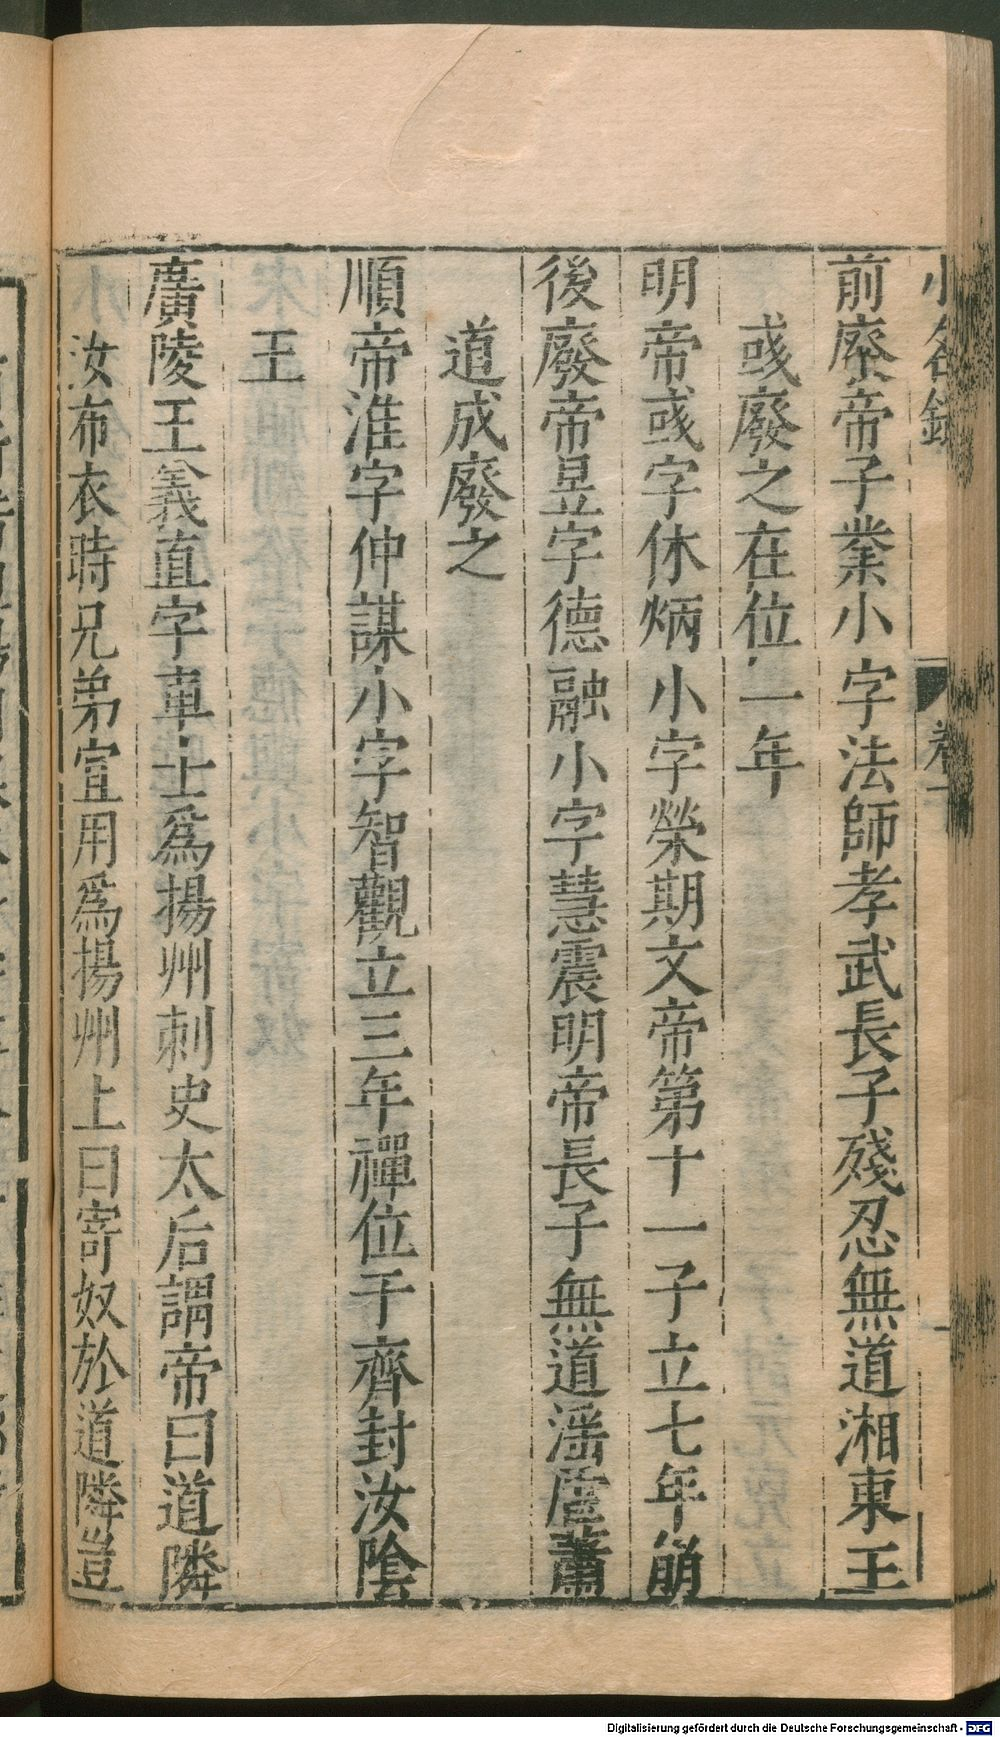 前廢帝子業小字法師孝武長子殘忍無道湘東王
彧廢之在位一年
明帝彧字休炳小字榮期文帝第十一子立七年崩
後廢帝昱字德融小字慧震明帝長子無道滛虐蕭
道成廢之
順帝淮字仲謀小字智觀立三年禪位于齊封汝陰
王
廣陵王義直字車士爲揚州刺史太后謂帝曰道隣
汝布衣時兄弟宜用爲揚州上曰寄奴於道隣豈
Digitalisierung gefördert durch die Deutsche Forschungsgemeinschaft - DFG